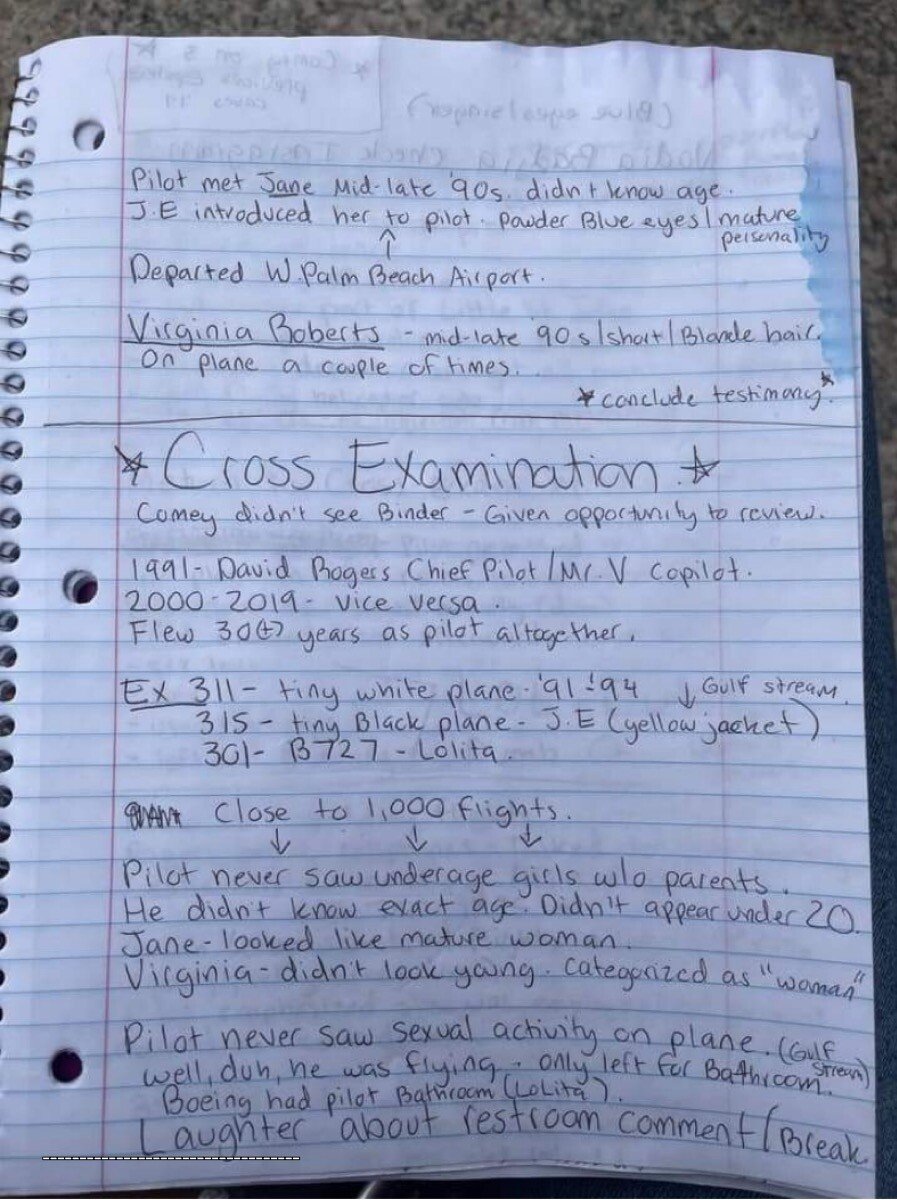 Pilot met Jane Mid-late '90s. didn't know age.
J.E introduced her to pilot. Powder Blue eyes/mature
personality
Departed W. Palm Beach Airport.
Virginia Roberts - mid-late '90s/short/Blonde hair.
On plane a couple of times.
*conclude testimony*
* Cross Examination. *
Comey didn't see Binder - Given opportunity to review.
1991- David Rogers Chief Pilot/Mr. V copilot.
2000-2019- vice versa.
Flew 30(+) years as pilot altogether.
Ex 311- tiny white plane. '91-'94 ↓ Gulf stream
315 - tiny Black plane - J.E (yellow jacket)
301- B727 - Lolita.
Close to 1,000 flights.
↓ ↓ ↓
Pilot never saw underage girls w/o parents.
He didn't know exact age. Didn't appear under 20.
Jane-looked like mature woman.
Virginia- didn't look young. Categorized as "woman"
Pilot never saw sexual activity on plane. (Gulf
stream)
well, duh, he was flying. only left for Bathroom.
Boeing had pilot Bathroom (Lolita).
Laughter about restroom comment/Break